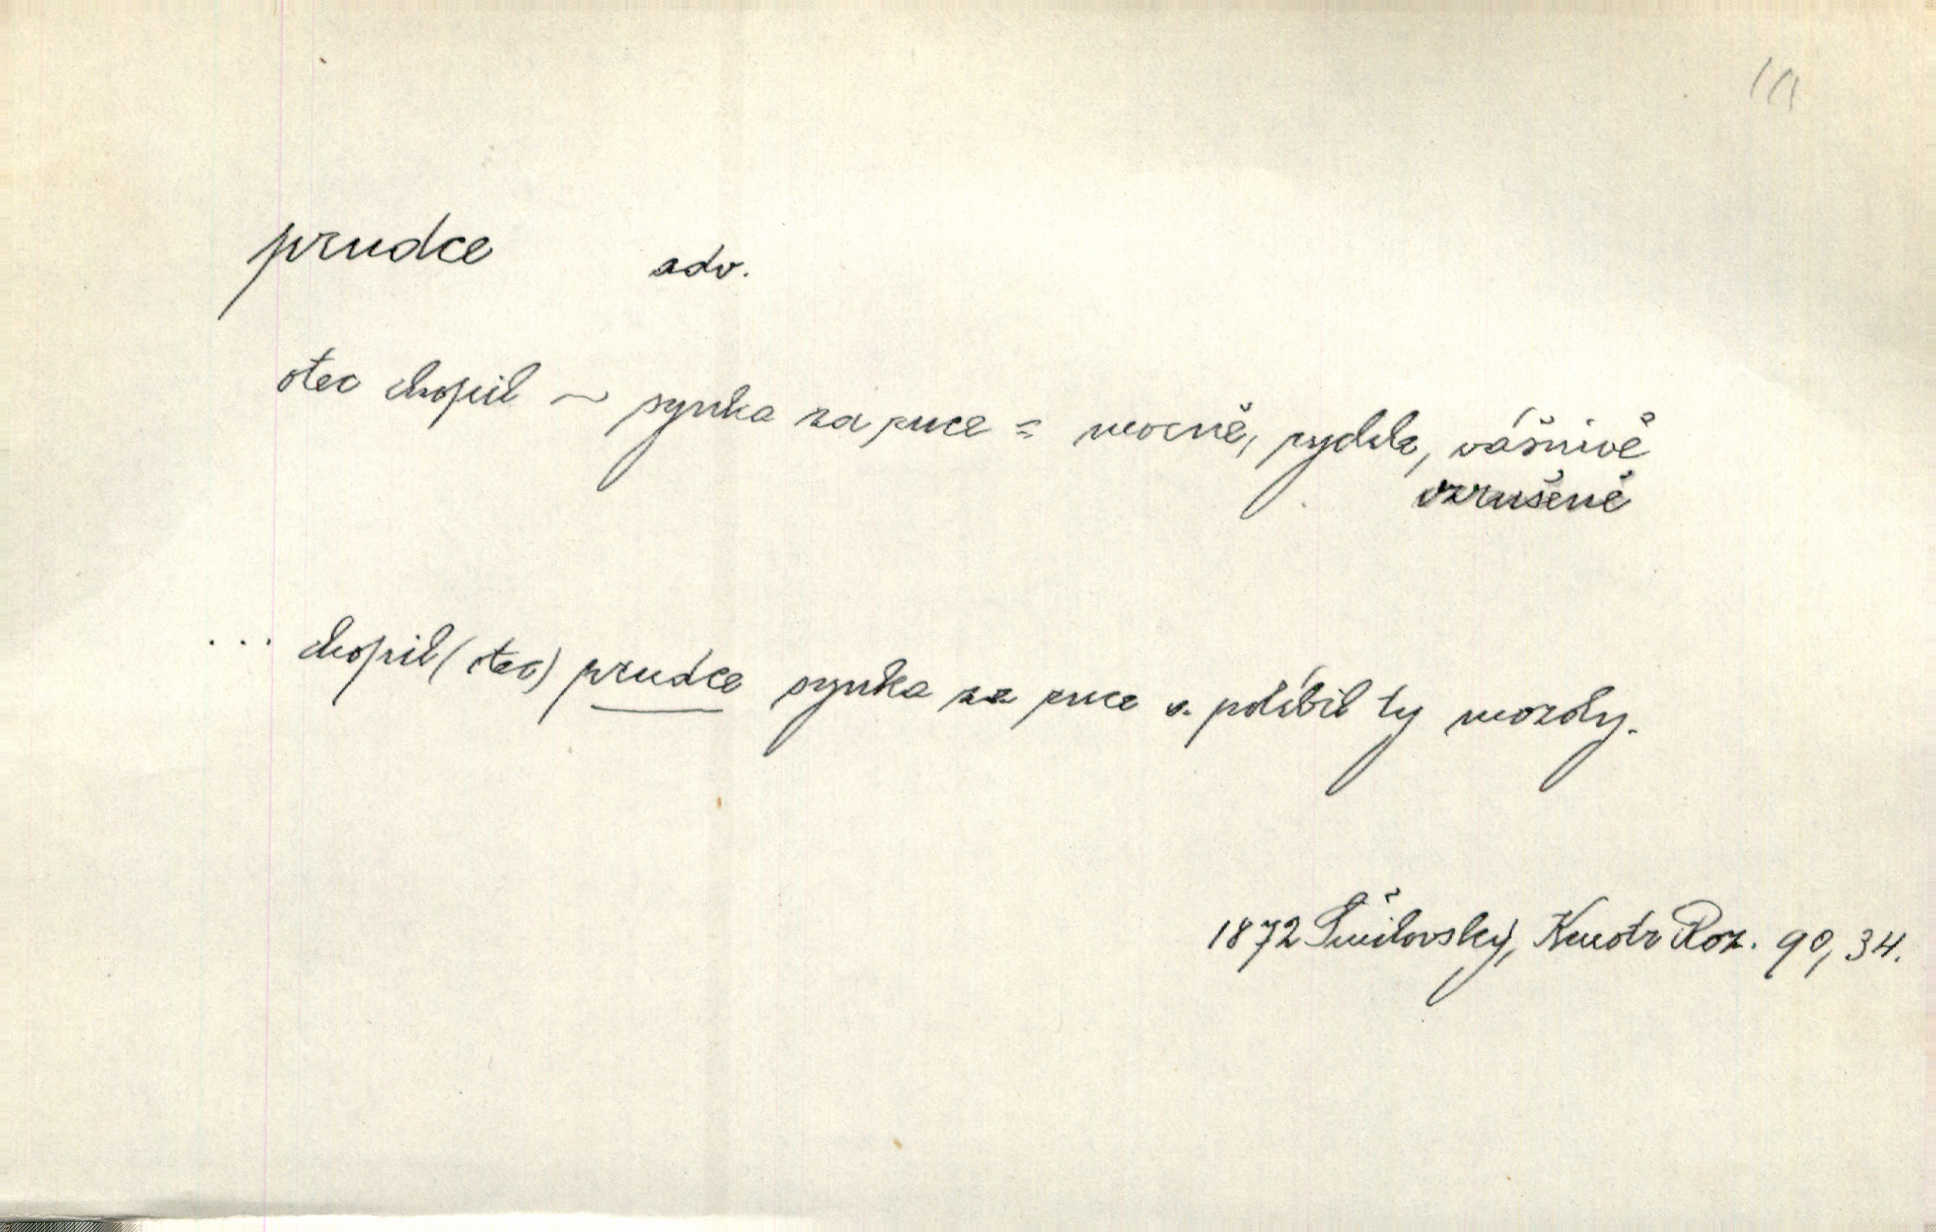 prudce adv.
otec chopil ~ synka za ruce = mocně, rychle, vášnivě
vzrušeně
... chopil (otec) prudce synka za ruce a políbil ty mozoly.
1872 Šmilovský, Kmotr Roz. 90, 34.